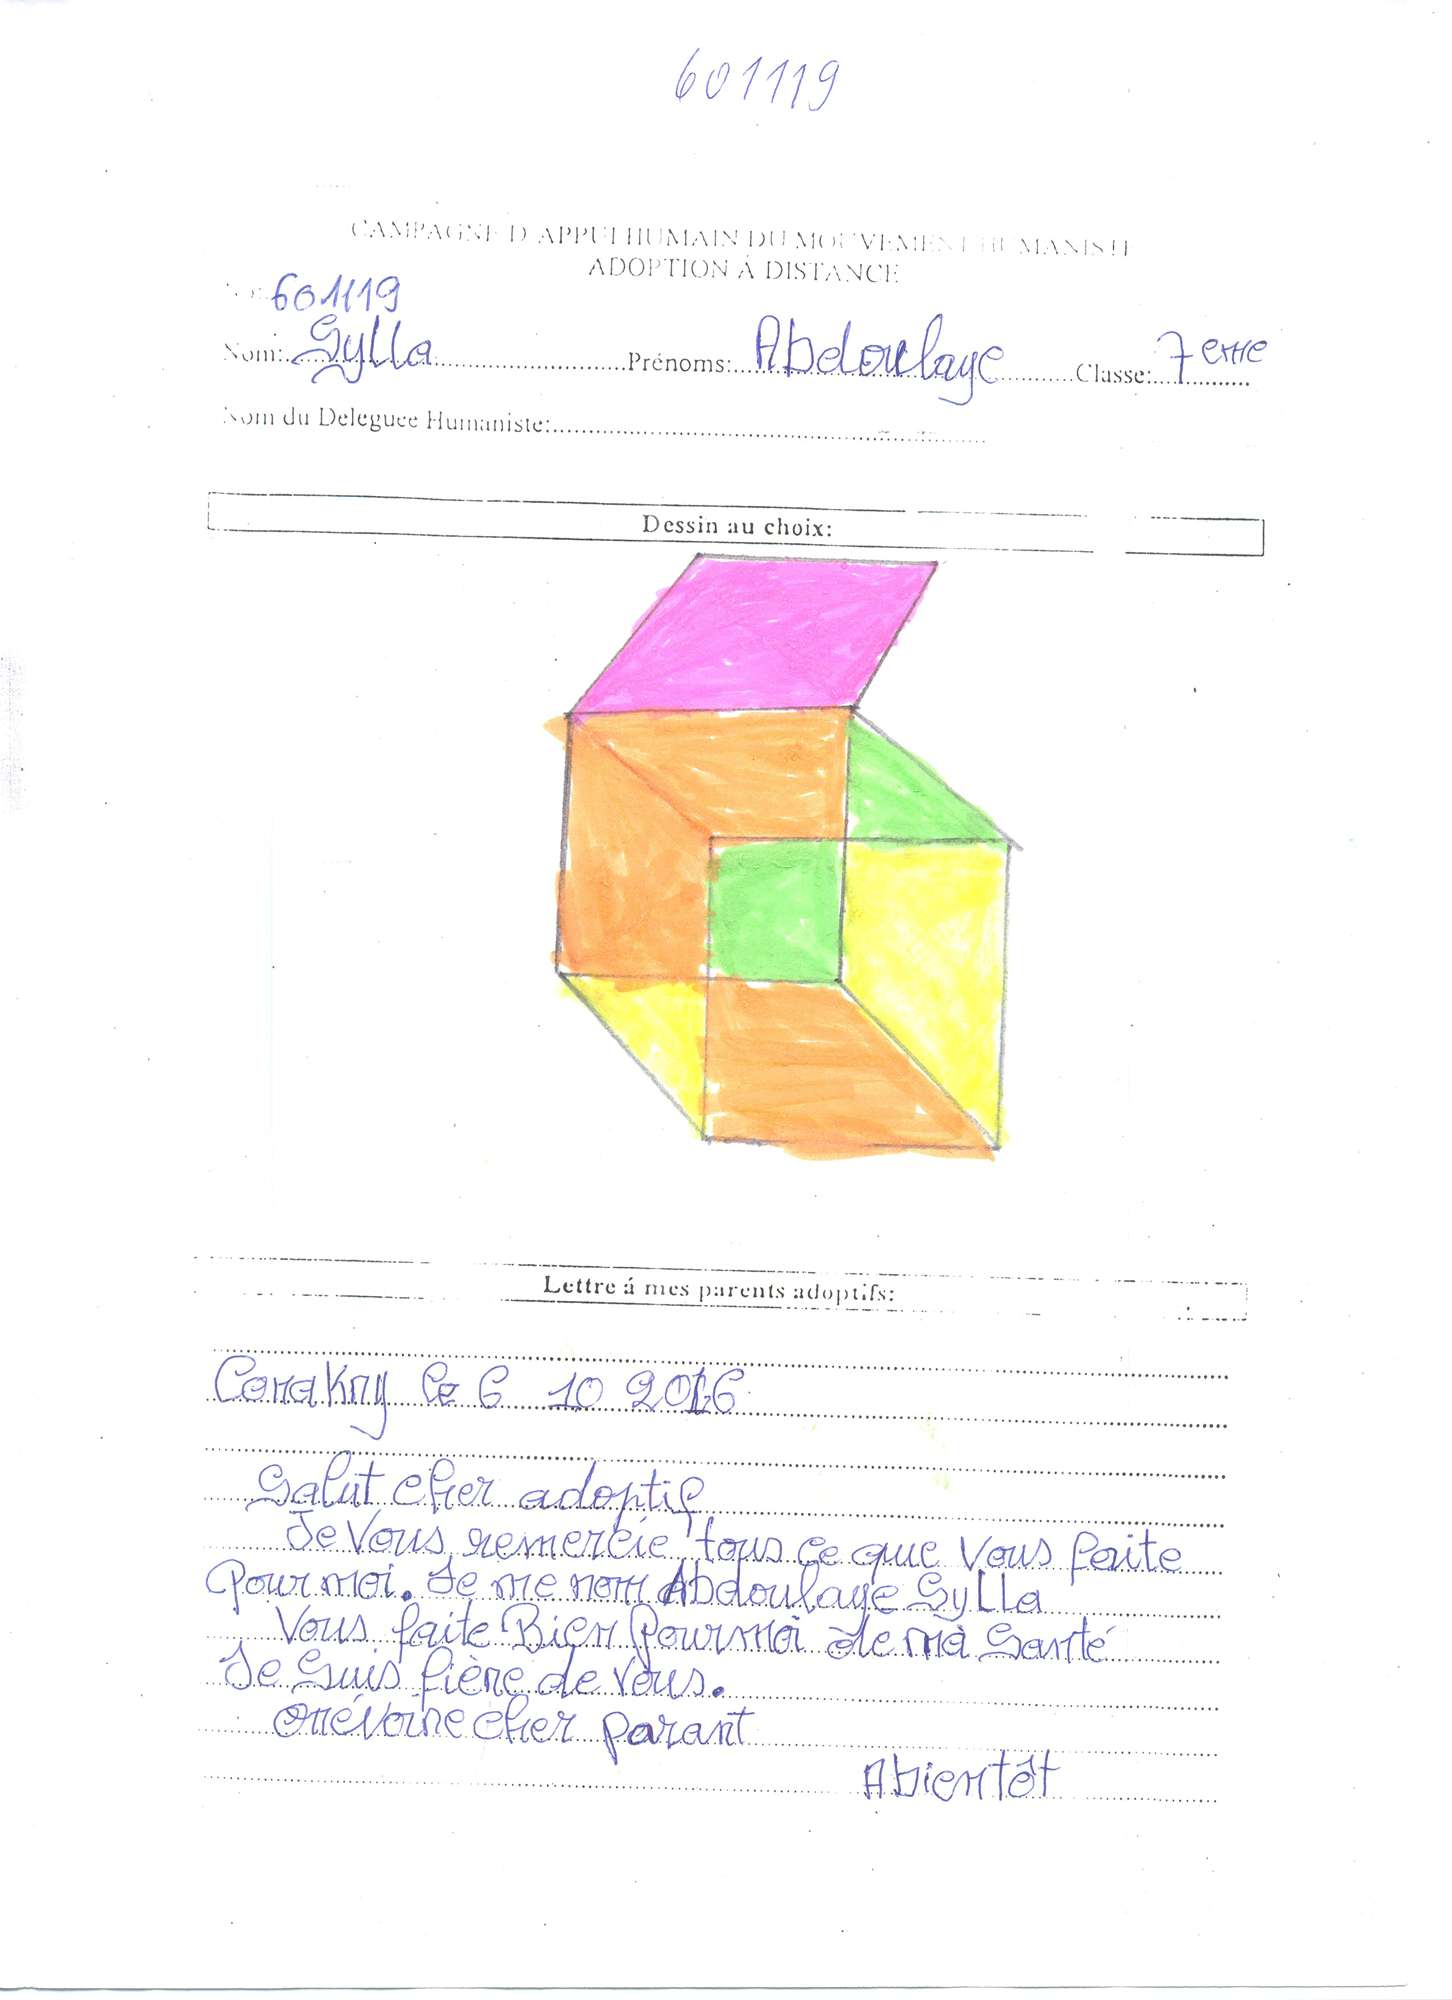 601119
CAMPAGNE D'APPUI HUMAIN DU MOUVEMENT HUMANISTE
ADOPTION Á DISTANCE
No: 601119
Nom: Sylla Prénoms: Abdoulaye Classe: 7eme
Nom du Deleguee Humaniste:
Dessin au choix:
Lettre á mes parents adoptifs:
Conakry le 6 10 2016
Salut cher adoptif
Je vous remercie tous ce que vous faite
Pour moi. Je me nom Abdoulaye Sylla
Vous faite Bien pour moi de ma Santé
Je Suis fière de vous.
Orévoire cher parant
Abientôt